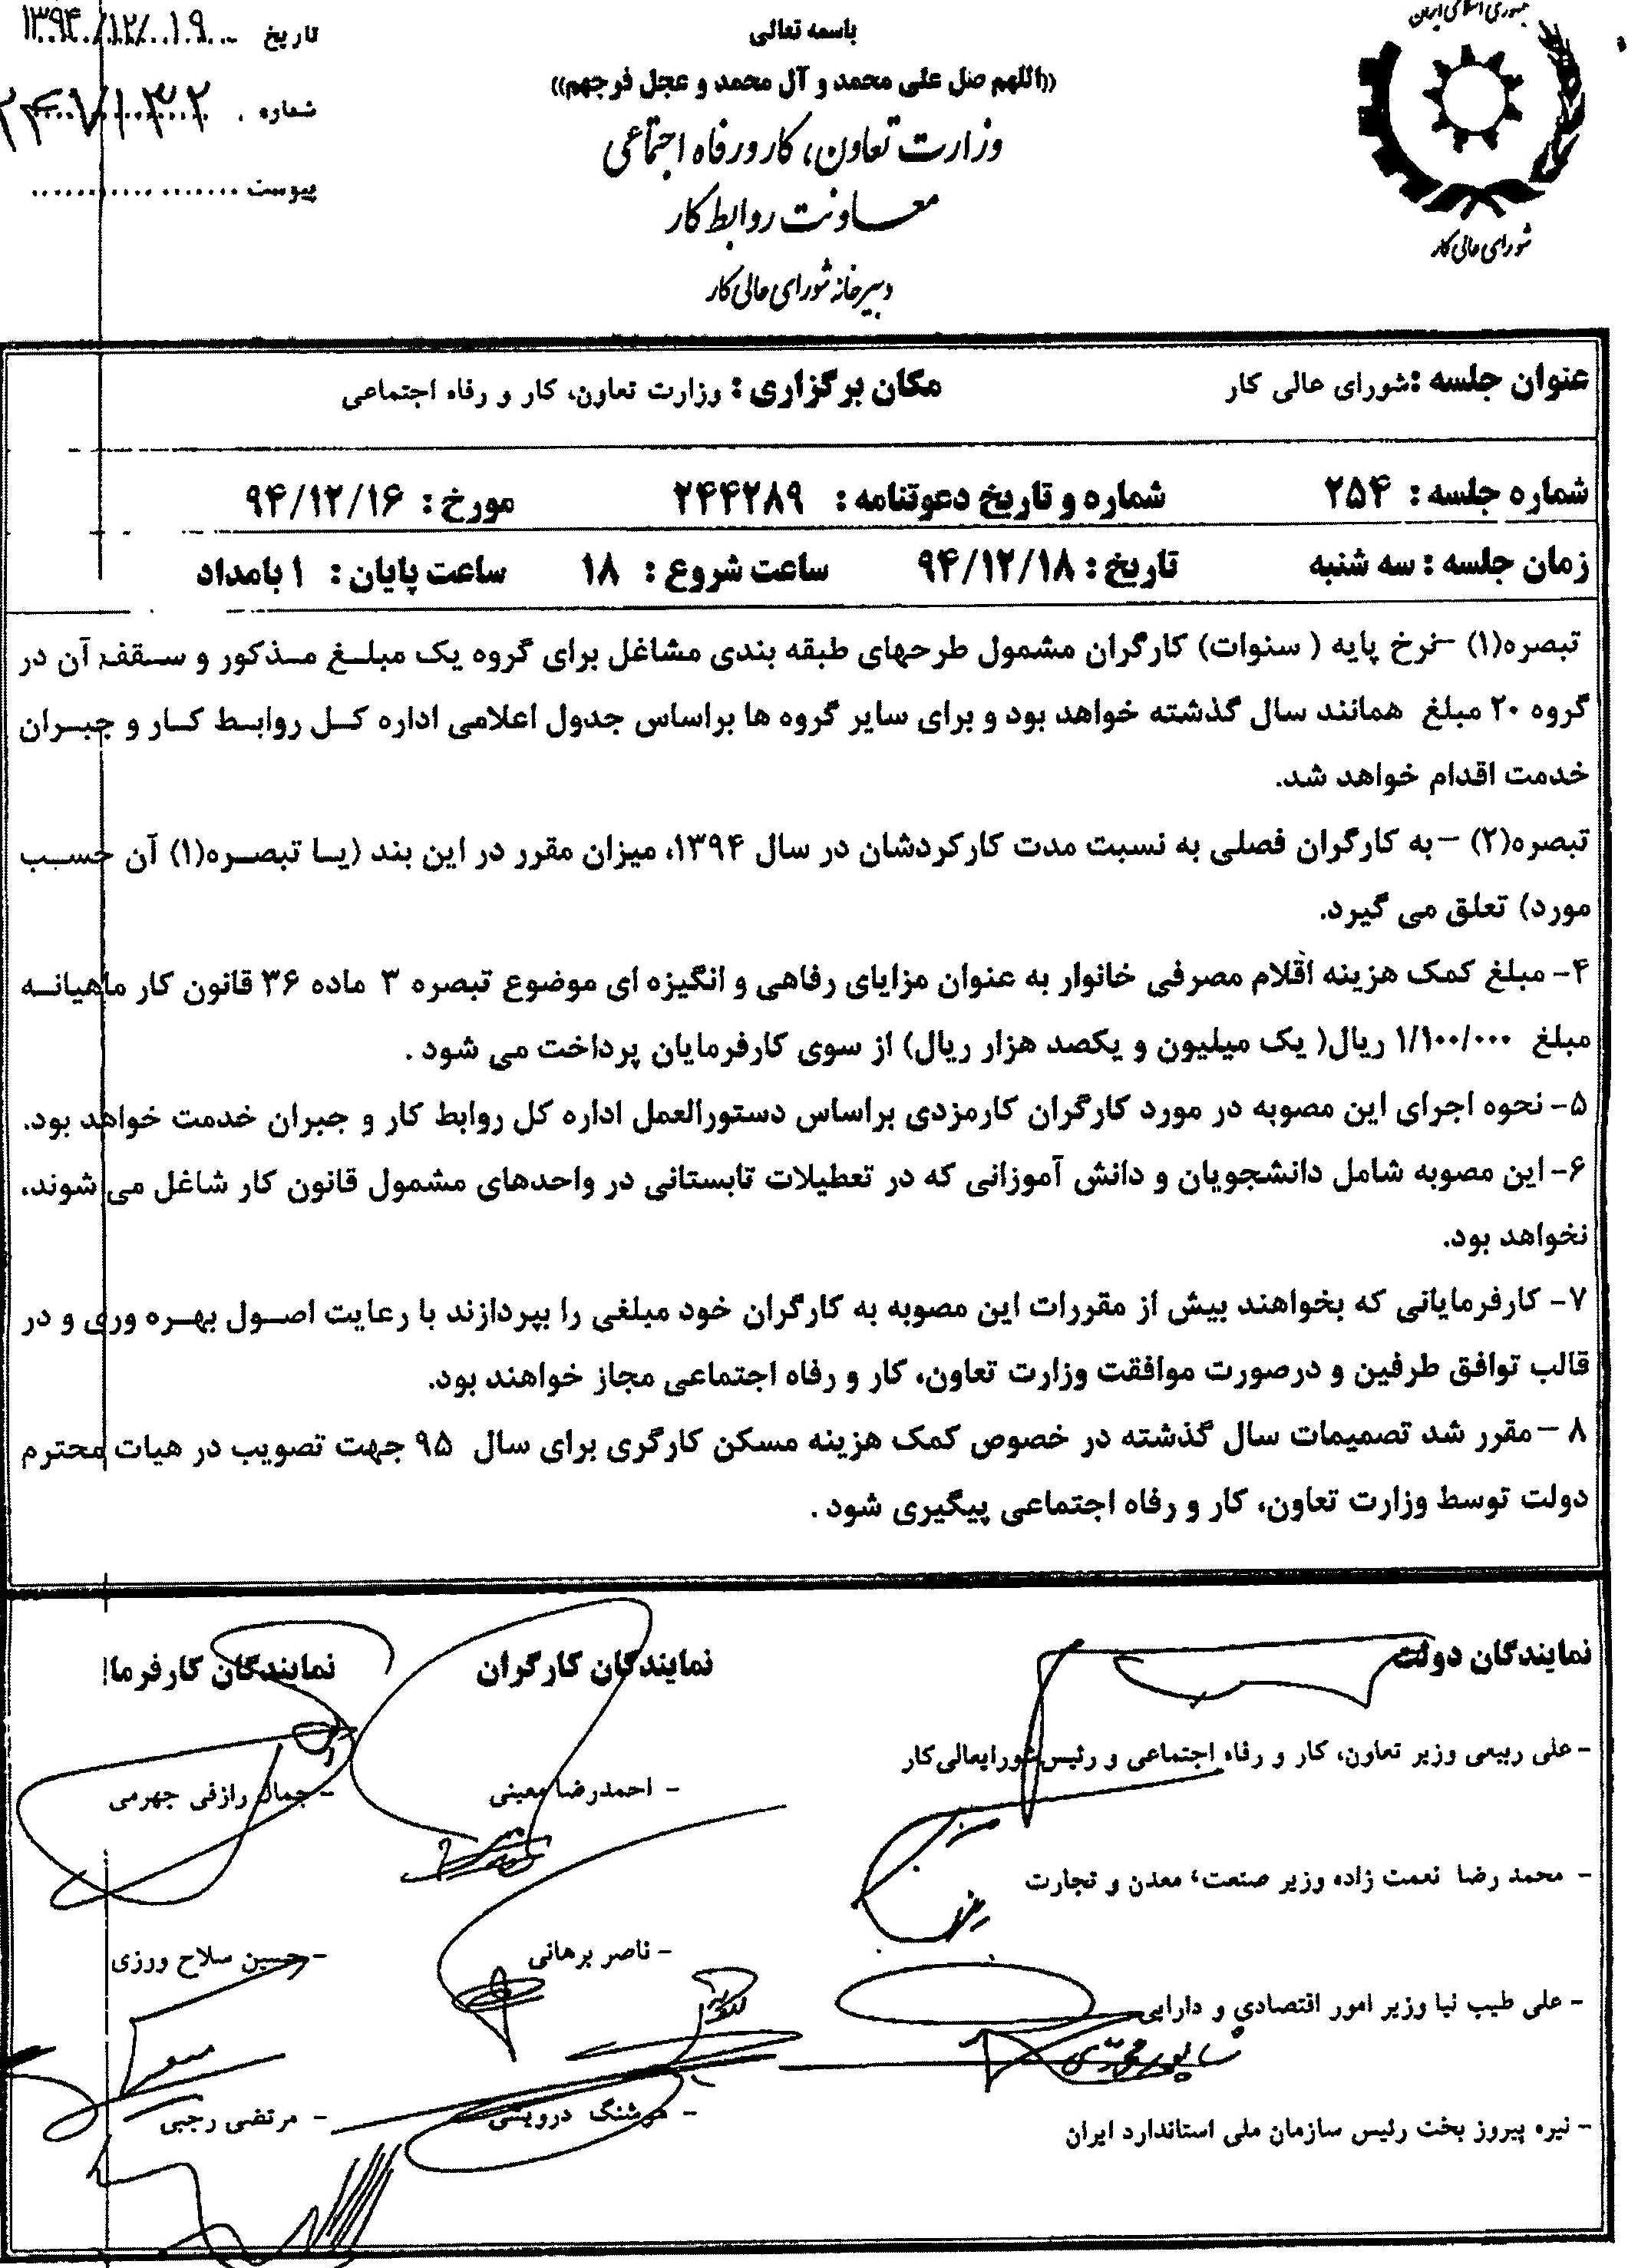 جمهوری اسلامی ایران
شورای عالی کار
باسمه تعالی
((اللهم صل علی محمد و آل محمد و عجل فرجهم))
وزارت تعاون، کار و رفاه اجتماعی
معاونت روابط کار
دبیرخانه شورای عالی کار
تاریخ ۱۳۹۴/۱۲/۱۹
شماره
پیوست
عنوان جلسه :شورای عالی کار مکان برگزاری : وزارت تعاون، کار و رفاه اجتماعی
شماره جلسه : ۲۵۴ شماره و تاریخ دعوتنامه : ۲۴۴۲۸۹ مورخ : ۹۴/۱۲/۱۶
زمان جلسه : سه شنبه تاریخ : ۹۴/۱۲/۱۸ ساعت شروع : ۱۸ ساعت پایان : ۱ بامداد
تبصره(۱) -نرخ پایه ( سنوات) کارگران مشمول طرحهای طبقه بندی مشاغل برای گروه یک مبلغ مذکور و سقف آن در
گروه ۲۰ مبلغ همانند سال گذشته خواهد بود و برای سایر گروه ها براساس جدول اعلامی اداره کل روابط کار و جبران
خدمت اقدام خواهد شد.
تبصره(۲) -به کارگران فصلی به نسبت مدت کارکردشان در سال ۱۳۹۴، میزان مقرر در این بند (یا تبصره(۱) آن حسب
مورد) تعلق می گیرد.
۴- مبلغ کمک هزینه اقلام مصرفی خانوار به عنوان مزایای رفاهی و انگیزه ای موضوع تبصره ۳ ماده ۳۶ قانون کار ماهیانه
مبلغ ۱/۱۰۰/۰۰۰ ریال( یک میلیون و یکصد هزار ریال) از سوی کارفرمایان پرداخت می شود .
۵- نحوه اجرای این مصوبه در مورد کارگران کارمزدی براساس دستورالعمل اداره کل روابط کار و جبران خدمت خواهد بود.
۶- این مصوبه شامل دانشجویان و دانش آموزانی که در تعطیلات تابستانی در واحدهای مشمول قانون کار شاغل می شوند،
نخواهد بود.
۷- کارفرمایانی که بخواهند بیش از مقررات این مصوبه به کارگران خود مبلغی را بپردازند با رعایت اصول بهره وری و در
قالب توافق طرفین و درصورت موافقت وزارت تعاون، کار و رفاه اجتماعی مجاز خواهند بود.
۸ -مقرر شد تصمیمات سال گذشته در خصوص کمک هزینه مسکن کارگری برای سال ۹۵ جهت تصویب در هیات محترم
دولت توسط وزارت تعاون، کار و رفاه اجتماعی پیگیری شود .
نمایندگان دولت
- علی ربیعی وزیر تعاون، کار و رفاه اجتماعی و رئیس شورایعالی کار
- محمد رضا نعمت زاده وزیر صنعت، معدن و تجارت
- علی طیب نیا وزیر امور اقتصادی و دارایی
- نیره پیروز بخت رئیس سازمان ملی استاندارد ایران
نمایندگان کارگران
- احمدرضا معینی
- ناصر برهانی
- هوشنگ درویشی
نمایندگان کارفرما
- جمال رازقی جهرمی
- حسین سلاح ورزی
- مرتضی رجبی